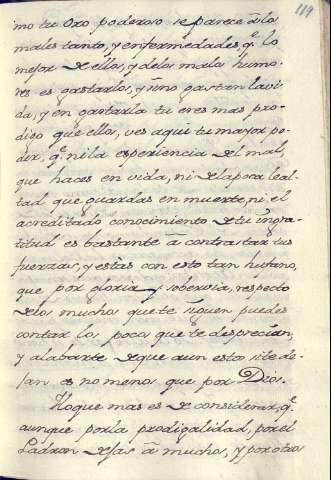 119
mo tu Oro poderoso se parece â los
males tanto, y enfermedades, q.e lo
mejor de ellos, y delos malos humo-
res es gastarlos, y si no gastan lavi
da, y en gastarla tu eres mas pro-
digo que ellos, ves aqui tu mayor po-
der, q.e nila esperiencia del mal,
que haces en vida, ni delapoca leal-
tad que guardas en muerte, ni el
acreditado conocimiento de tu ingra-
titud es bastante â contrastar tus
fuerzas, y estâs con esto tan hufano,
que por gloria y sobervia, respecto
delos muchos que te siguen puedes
contar los pocos que te desprecian,
y alabarte deque aun estos si te de-
jan es no menos que por Dios.
Yloque mas es de considerar, q.e
aunque porla prodigalidad, por el
Ladron dejas â muchos, y por otros